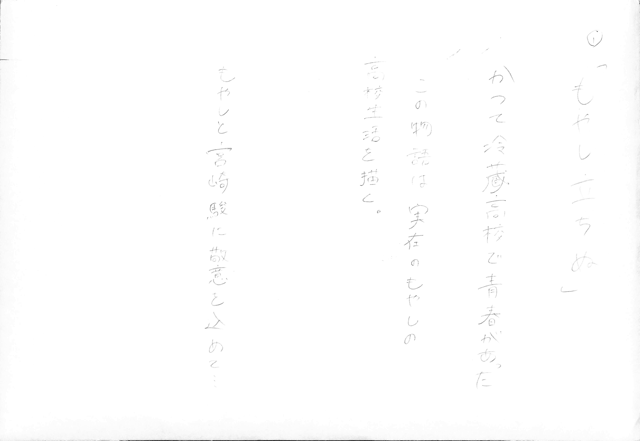 ①「もやし立ちぬ」
かつて冷蔵高校で青春があった
この物語は実在のもやしの
高校生活を描く。
もやしと宮崎駿に敬意を込めて…